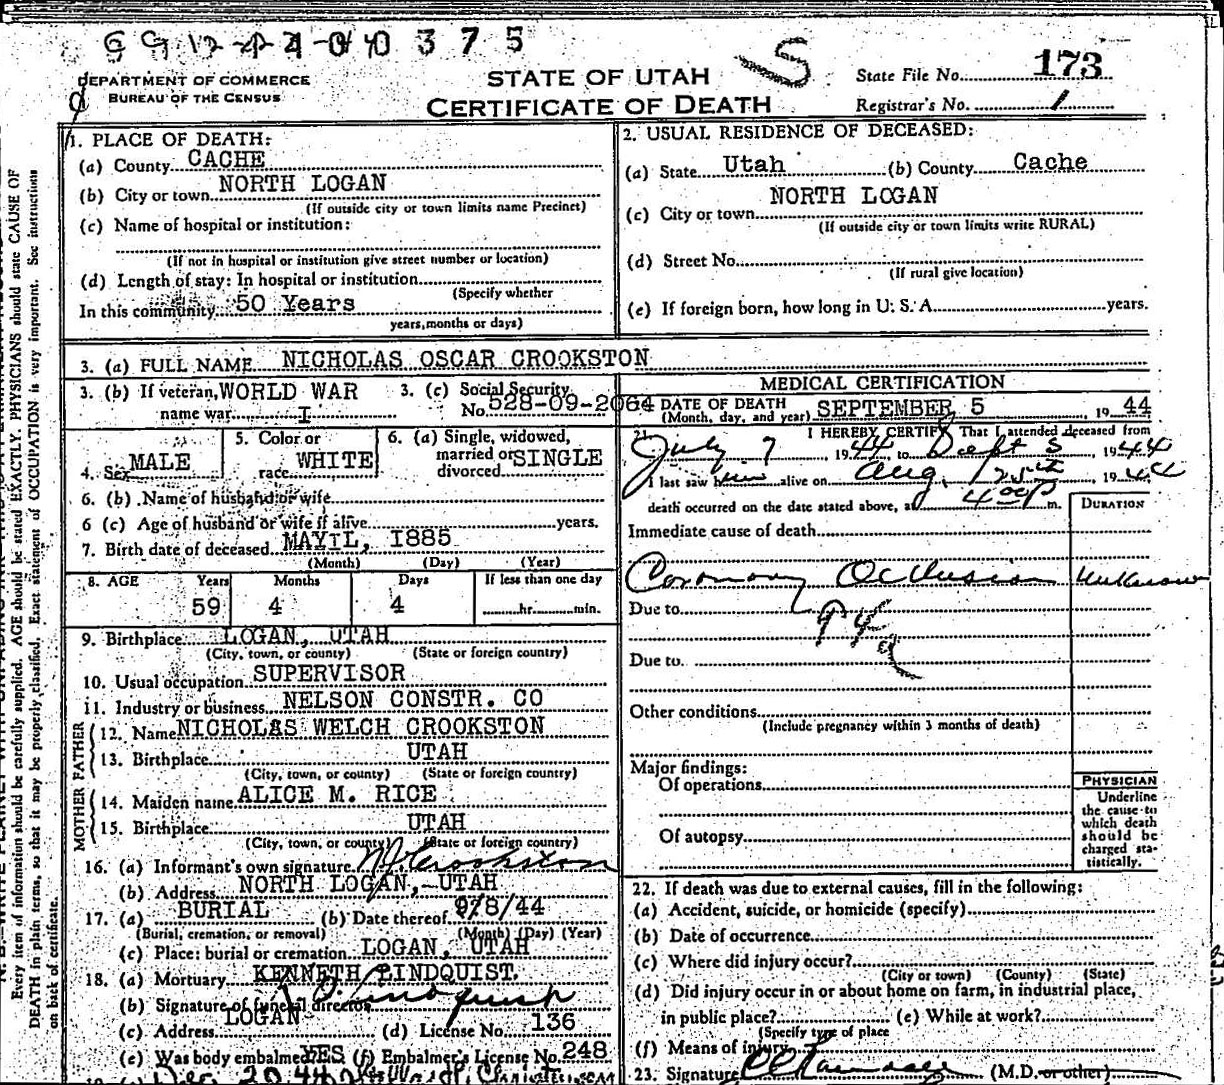 375
DEPARTMENT OF COMMERCE
BUREAU OF THE CENSUS
STATE OF UTAH
CERTIFICATE OF DEATH
State File No. 173
Registrar's No. 1
1. PLACE OF DEATH:
(a) County CACHE
(b) City or town NORTH LOGAN
(If outside city or town limits name Precinct)
(c) Name of hospital or institution:
(If not in hospital or institution give street number or location)
(d) Length of stay: In hospital or institution
(Specify whether
In this community 50 Years
years, months or days)
2. USUAL RESIDENCE OF DECEASED:
(a) State Utah (b) County Cache
(c) City or town NORTH LOGAN
(If outside city or town limits write RURAL)
(d) Street No.
(If rural give location)
(e) If foreign born, how long in U. S. A. years.
3. (a) FULL NAME NICHOLAS OSCAR CROOKSTON
3. (b) If veteran, WORLD WAR
name war I
3. (c) Social Security
No. 528-09-2064
4. Sex MALE
5. Color or
race WHITE
6. (a) Single, widowed,
married or
divorced SINGLE
6. (b) Name of husband or wife
6 (c) Age of husband or wife if alive years.
7. Birth date of deceased MAYIL, I885
(Month) (Day) (Year)
8. AGE Years Months Days If less than one day
59 4 4 hr. min.
9. Birthplace LOGAN, UTAH
(City, town, or county) (State or foreign country)
10. Usual occupation SUPERVISOR
11. Industry or business NELSON CONSTR. CO
FATHER
12. Name NICHOLAS WELCH CROOKSTON
13. Birthplace UTAH
(City, town, or county) (State or foreign country)
MOTHER
14. Maiden name ALICE M. RICE
15. Birthplace UTAH
(City, town, or county) (State or foreign country)
16. (a) Informant's own signature N J Crookston
(b) Address NORTH LOGAN, UTAH
17. (a) BURIAL (b) Date thereof 9/8/44
(Burial, cremation, or removal) (Month) (Day) (Year)
(c) Place: burial or cremation LOGAN, UTAH
18. (a) Mortuary KENNETH LINDQUIST.
(b) Signature of funeral director Lindquist
(c) Address LOGAN (d) License No. 136
(e) Was body embalmed? YES (f) Embalmer's License No. 248
MEDICAL CERTIFICATION
DATE OF DEATH
(Month, day, and year) SEPTEMBER 5, 1944
21. I HEREBY CERTIFY That I attended deceased from
July 7 1944 to Sept 5 1944
I last saw him alive on Aug. 25th 1944
death occurred on the date stated above, at 4 00 P m.
DURATION
Immediate cause of death
Coronary Occlusion Unknown
Due to
94a
Due to.
Other conditions
(Include pregnancy within 3 months of death)
Major findings:
Of operations
Of autopsy
PHYSICIAN
Underline
the cause to
which death
should be
charged sta-
tistically.
22. If death was due to external causes, fill in the following:
(a) Accident, suicide, or homicide (specify)
(b) Date of occurrence
(c) Where did injury occur?
(City or town) (County) (State)
(d) Did injury occur in or about home on farm, in industrial place,
in public place? (e) While at work?
(Specify type of place
(f) Means of injury
23. Signature (M.D. or other)
Every item of information should be carefully supplied. AGE should be stated EXACTLY. PHYSICIANS should state CAUSE OF
DEATH in plain terms, so that it may be properly classified. Exact statement of OCCUPATION is very important. See instructions
on back of certificate.